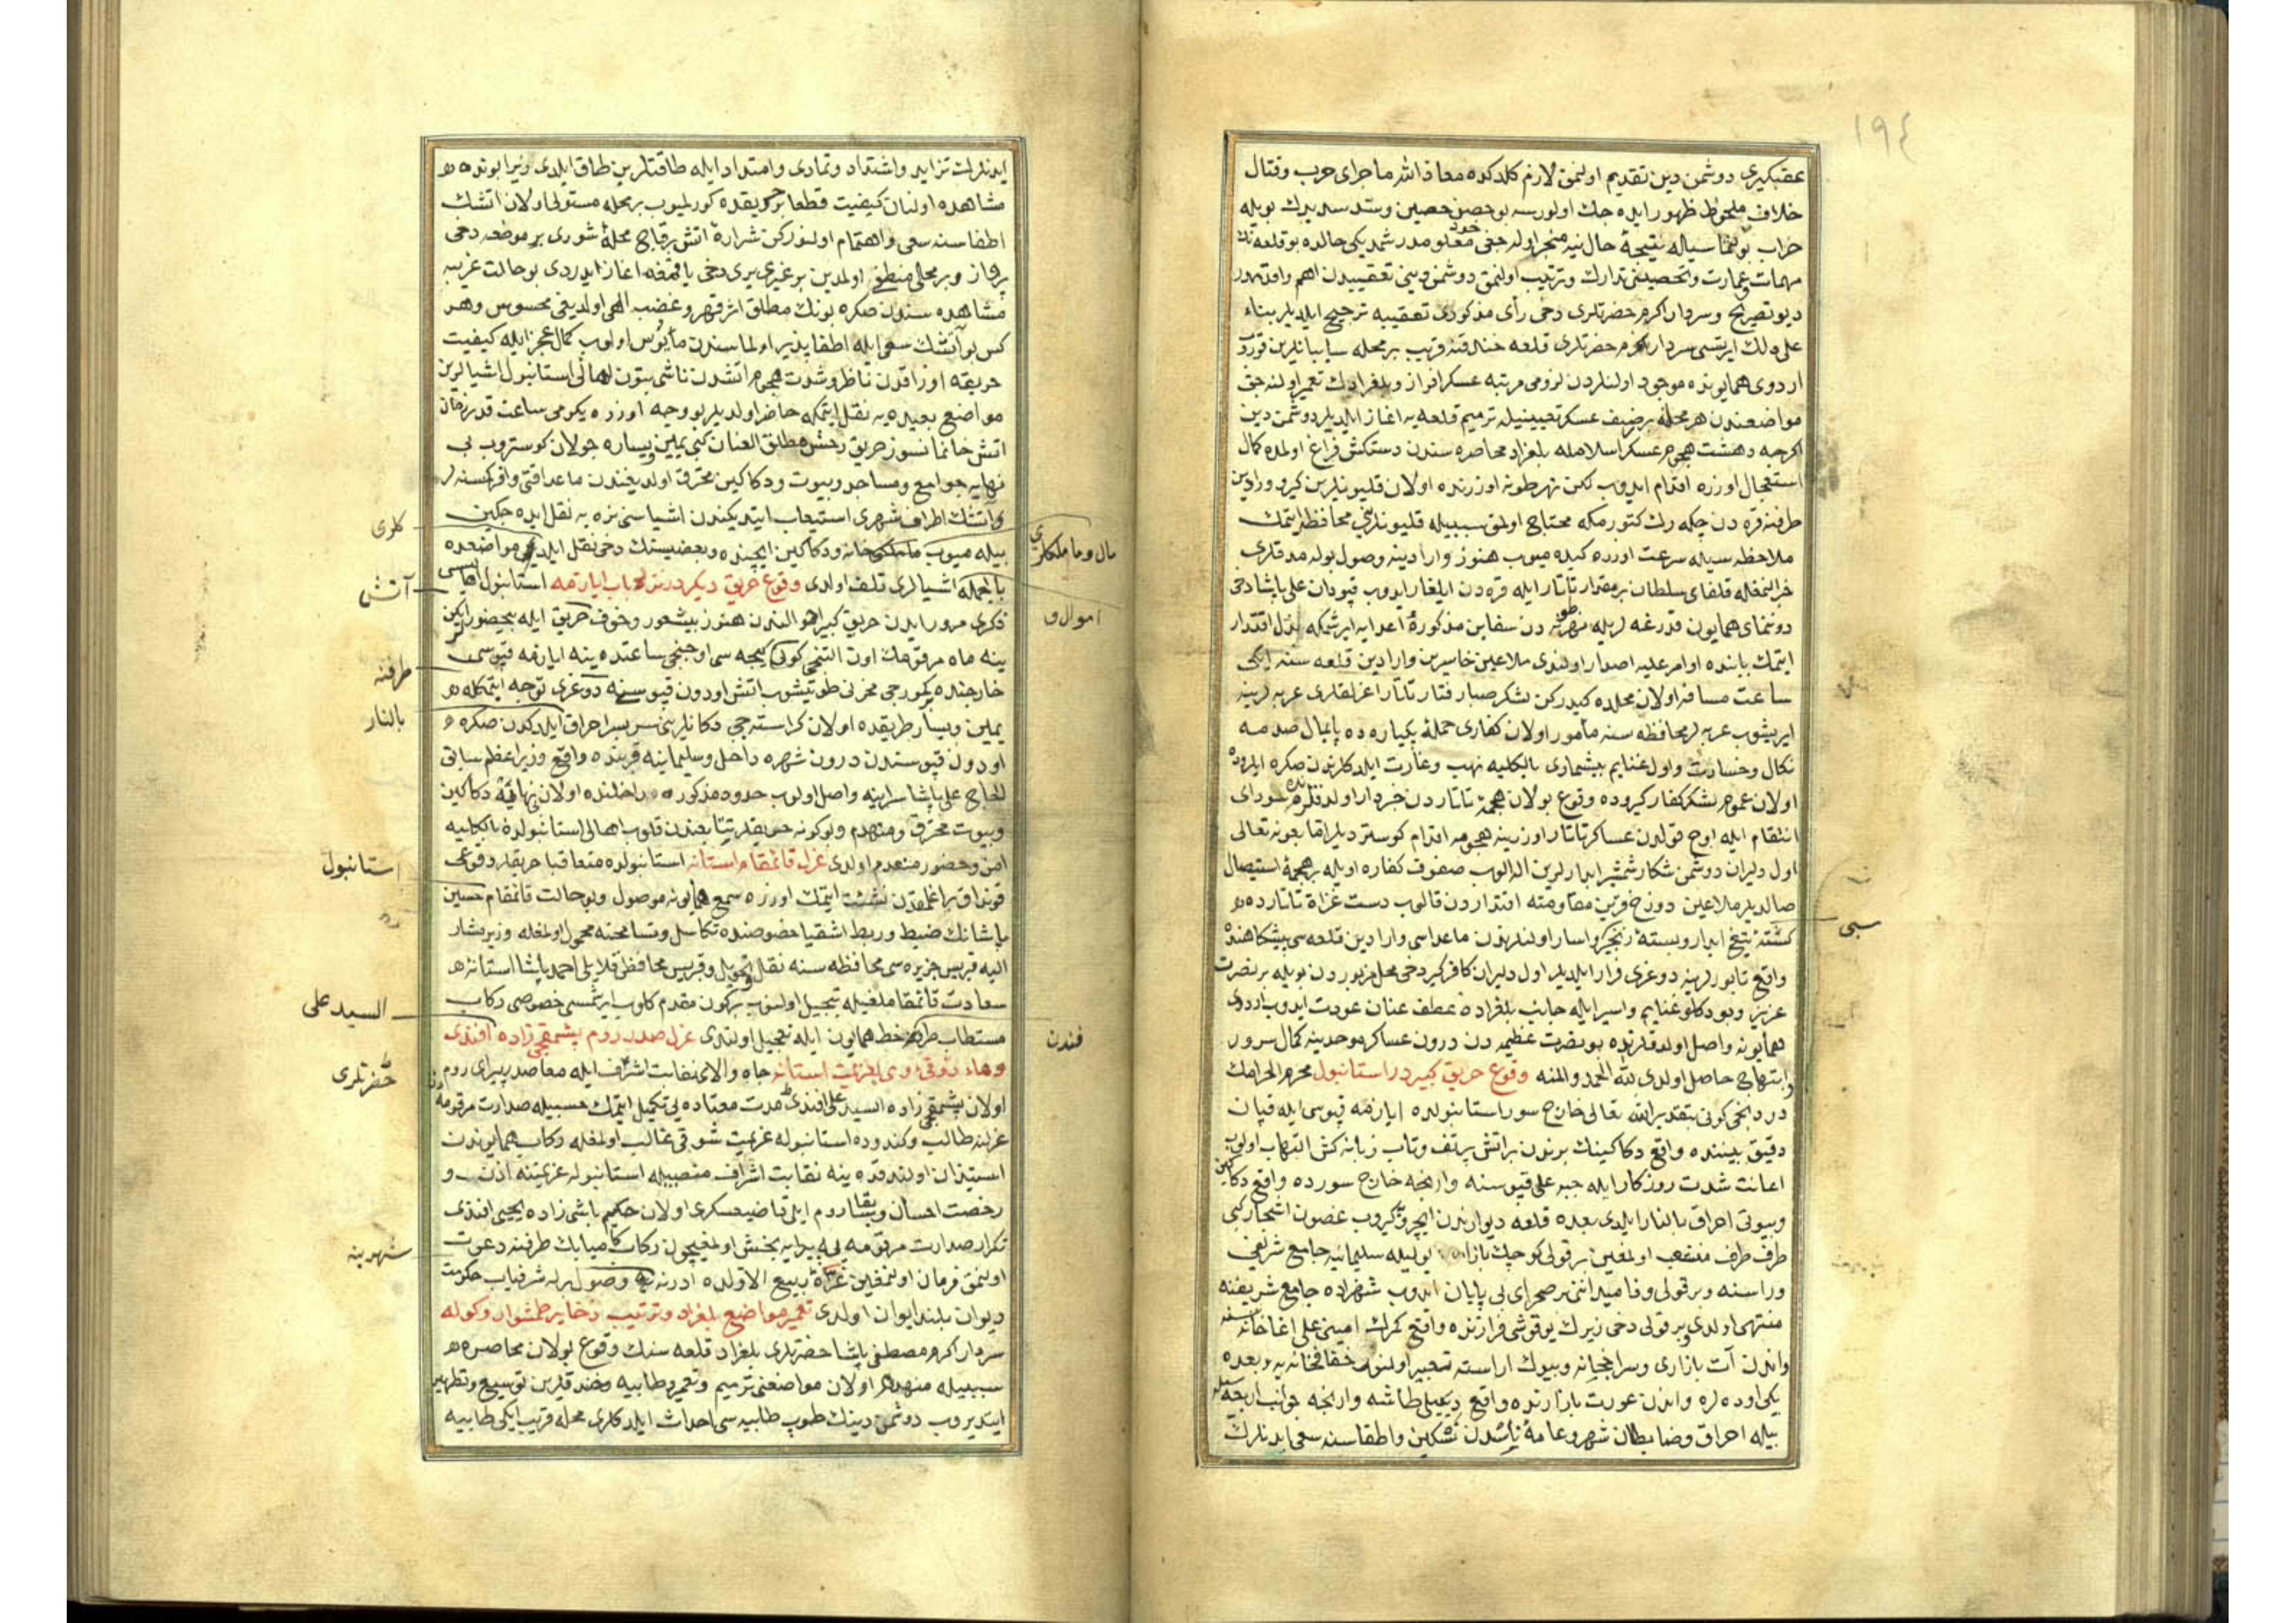 ١٩٤
عقبكيرى دوشمن دين تقديم اولنمق لازم كلدكده معاذ الله ماجراى حرب وقتال
خلاف ملحوظ ظهور ايده جك اولورسه بو حصن حصين وسد سديدك بويله
خراب بولنماسيله نتيجۀ حال نيه منجر اوله جغى معلومدر شمديكى حالده بو قلعه نك
مهمات وعمارت وتحصينى تدارك وترتيب اولنمق دوشمن دينى تعقيبدن اهم واقدمدر
ديو تصريح وسردار اكرم حضرتلرى دخى رأى مذكورى تعقيبه ترجيح ايلديلر بناء
على ذلك ايرتسى سردار اكرم حضرتلرى قلعه خندقنه قريب بر محله سايبانلرين قوروب
اردوى همايونده موجود اولنلردن لزومى مرتبه عسكر افراز وبلغرادك تعمير اولنه جق
مواضعندن هر محلنه بر صنف عسكر تعيينيله ترميم قلعه يه اغاز ايلديلر دوشمن دين
اكرچه دهشت هجوم عسكر اسلامله بلغراد محاصره سندن دستكش فراغ اولمده كمال
استعجال اوزره اقدام ايدوب لكن نهر طونه اوزرنده اولان قليونلرين كيرو وارادين
طرفنه قره دن چكه رك كتورمكه محتاج اولمق سببيله قليونلرينى محافظه ايتمك
ملاحظه سيله سرعت اوزره كيده ميوب هنوز وارادينه وصول بولمدقلرى
خبر اولنمغله قلغاى سلطان بر مقدار تاتار ايله قره دن ايلغار ايدوب قپودان على پاشا دخى
دوننماى همايون قدرغه لريله نهر طونه دن سفاين مذكورۀ اعدايه ايرشمكه بذل اقتدار
ايتمك بابنده اوامر عليه اصدار اولندى ملاعين خاسرين وارادين قلعه سنه ايكى
ساعت مسافه اولان محلده كيدركن لشكر صبا رفتار تاتار اغرلقلرى عربه لرينه
ايريشوب عربه لر محافظه سنه مأمور اولان كفارى حملۀ يكباره ده پايمال صدمه
نكال وخسارت واول غنايم بيشمارى بالكليه نهب وغارت ايلدكلرندن صكره ايلروده
اولان عموم لشكر كفار كيروده وقوع بولان هجمۀ تاتاردن خبردار اولدقلرنده سوداى
انتقام ايله اوج قولدن عساكر تاتار اوزرينه هجومه اقدام كوستردیلر اما بعونه تعالى
اول دليران دوشمن شكار شمشير ابدارلرين اله الوب صفوف كفاره اويله بر هجمۀ استيصال
صالديلر ملاعين دوزخ قرين مقاومته اقتداردن قالوب دست غزاة تاتارده
كشتۀ تيغ ابدار وبستۀ زنجير واسار اولنلردن ماعداسى وارادين قلعه سى پيشكاهنده
سبى
واقع تابورلرينه دوغرى فرار ايلديلر اول دليران كافركير دخى محل مزبوردن بويله بر نصرت
عزيز وبو دكلو غنايم واسير ايله جانب بلغراده عطف عنان عودت ايدوب اردوى
همايونه واصل اولدقلرنده بو نصرت عظيمه دن درون عساكر موحدينه كمال سرور
وابتهاج حاصل اولدى لله الحمد والمنه وقوع حريق كبير در استانبول محرم الحرامك
دردنجى كونى بتقدير الله تعالى خارج سور استانبولده ايازمه قپوسى ايله قپان
دقيق بيننده واقع دكاكينك برندن بر اتش پر تف وتاب زبانه كش التهاب اولوب
اعانت شدت روزكار ايله جبه على قپوسنه وارنجه خارج سورده واقع دكاكين
وبيوتى احراق بالنار ايلدى بعده قلعه ديوارندن ايچرو كيروب غصون اشجار كبى
طرف طرف منشعب اولمغين بر قولى كوچك بازار يوليله سليمانيه جامع شريفى
وراسنه وبر قولى وفا ميداننى بر صحراى بى پايان ايدوب شهزاده جامع شريفنه
منتهى اولدى وبر قولى دخى زيرك يوقوشى فرازنده واقع كمرك امينى على اغا خانه سنه
واندن آت بازارى وسراجخانه وبيوك اراسته تعبير اولنور خفافخانه يه وبعده
يكى اوده لره واندن عورت بازارنده واقع ديكيلى طاشه وارنجه جوانب اربعه سيله
بيله احراق وضابطان شهر وعامۀ ناسدن تسكين واطفاسنه سعى ايدنلرك
ايدنلرك تزايد واشتداد وتمادى وامتداد ايله طاقتلرين طاق ايلدى زيرا بونده
مشاهده اولنان كيفيت قطعا بر حريقده كورلميوب بر محله مستولى اولان اتشك
اطفاسنه سعى واهتمام اولنوركن شرارۀ اتش بر قاچ محلۀ شورى بر موضعه دخى
پرواز وبر محلى منطفى اولمدين بر غيرى يرى دخى ياقمغه اغاز ايدردى بو حالت غريبه
مشاهده سندن صكره بونك مطلق اثر قهر وغضب الهى اولديغى محسوس وهر
كس بو آتشك سعى ايله اطفا پذير اولماسندن مأيوس اولوب كمال عجز ايله كيفيت
حريقه اوزاقدن ناظر وشدت هجوم اتشدن ناشى بتون اهالى استانبول اشيالرين
مواضع بعيده يه نقل ايتمكه حاضر اولديلر بو وجه اوزره يكرمى ساعت قدر زمان
اتش خانمانسوز حريق رخش مطلق العنان كبى يمين ويساره جولان كوستروب بى
نهايه جوامع ومساجد وبيوت ودكاكين محترق اولديغندن ماعدا قتى وافر كسنه لر
وآتشك اطراف شهرى استيعاب ايتديكندن اشياسنى نره يه نقل ايده جكين
كلرى
بيله ميوب خانه ودكاكين ايچنده وبعضيسنك دخى نقل ايلديكى مواضعده
مال وماملكلرى
بالجمله اشيالرى تلف اولدى وقوع حريق ديكر در نزد باب ايازمه استانبول
آتش
اموال و
ذكرى مرور ايدن حريق كبير اهوالندن هنوز بيشعور وخوف حريق ايله بيحضور ايكن
ينه ماه مرقومك اون التنجى كون كيجه سى اوچنجى ساعتده ينه ايازمه قپوسى
طرفنه
خارجنده كمورجى مخزنى طوتيشوب اتش اودون قپوسنه دوغرى توجه ايتمكله
بالنار
يمين ويسار طريقده اولان كراسته جى دكانلرينى سربسر احراق ايلدكدن صكره
اودون قپوسندن درون شهره داخل وسليمانيه قربنده واقع وزير اعظم سابق
الحاج على پاشا سراينه واصل اولوب حدود مذكوره داخلنده اولان دكاكين
وبيوت محترق ومنهدم وبو كونه حريقلر تتابعندن قلوب اهالى استانبولده بالكليه
امن وحضور منعدم اولدى عزل قائمقام استانه استانبولده متعاقبا حريقلر وقوعى
استانبول
قونداق براغلمقدن نشئت ايتمك اوزره سمع همايونه موصول وبو حالت قائمقام حسين
پاشانك ضبط وربط اشقيا خصوصنده تكاسل وتسامحنه محمول اولمغله وزير مشار
اليه قبريس جزيره سى محافظه سنه نقل وتحويل وقبريس محافظى قلايلى احمد پاشا استانۀ
سعادت قائمقاملغيله تبجيل اولنوب بر كون مقدم كلوب ايرشمسى خصوصى ركاب
السيد على
مستطاب طرفندن خط همايون ايله تعجيل اولندى عزل صدر روم پشمقجى زاده افندى
فندن
جاه والاى نقابت اشراف ايله مقاصد پيراى روم
حضرتلرى
اولان پشمقجى زاده السيد على افندى مدت معتاده يى تكميل ايتمك حسبيله صدارت مرقومه دن
عزلنه طالب وكندوده استانبوله عزيمت شوقى غالب اولمغله ركاب همايوندن
استيذان اولندقده ينه نقابت اشراف منصبيله استانبوله عزيمتنه اذن و
رخصت احسان وسابقا روم ايلى قاضيعسكرى اولان حكيم باشى زاده يحيى افندى
تكرار صدارت مرقومه ايله پيرايه بخش اولمغيچون ركاب كامياب طرفنه دعوت
شهرينه
اولنمق فرمان اولنمغين غرۀ ربيع الاولده ادرنه يه وصول بوله شرفياب حكومت
ديوان بلند ايوان اولدى تعمير مواضع بلغراد وترتيب ذخاير طمشوار وكوله
سردار اكرم مصطفى پاشا حضرتلرى بلغراد قلعه سنك وقوع بولان محاصره
سببيله منهدم اولان مواضعنى ترميم وتعمير وطابيه وخندقلرين توسيع وتطهير
ايتديروب دوشمن دينك طوپ طابيه سى احداث ايلدكلرى محله قريب ايكى طابيه